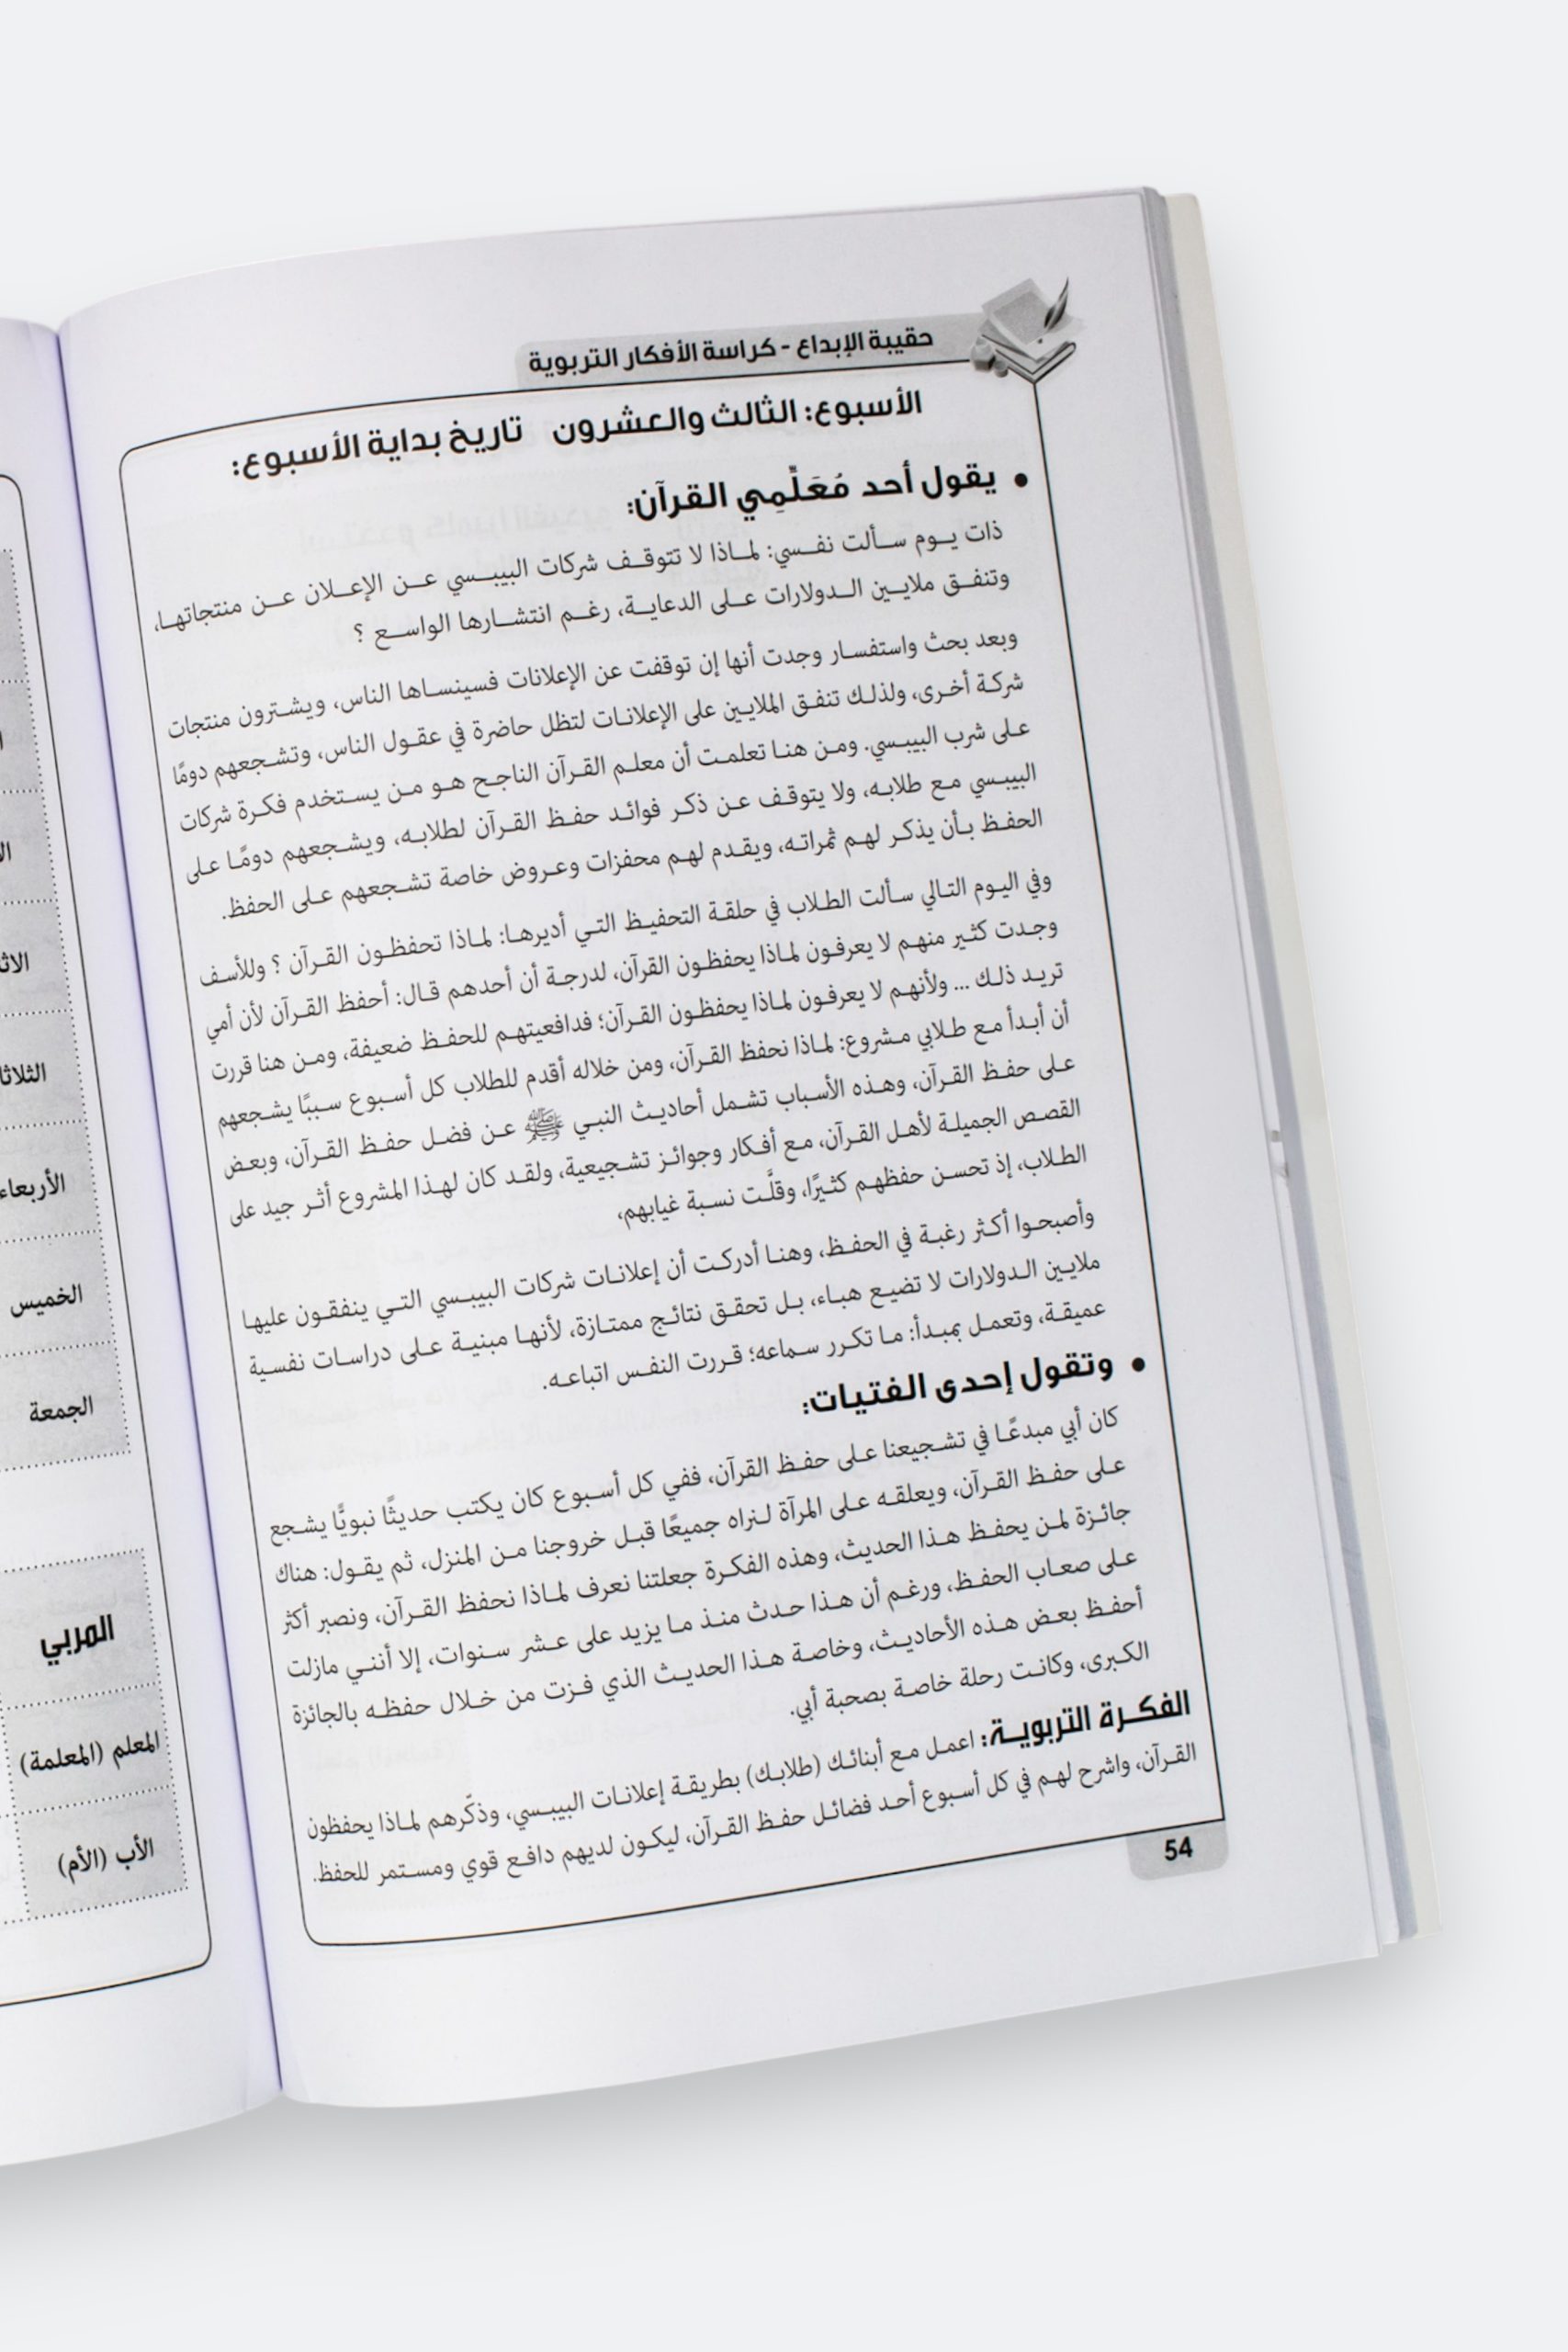 حقيبة الإبداع - كراسة الأفكار التربوية
الأسبوع: الثالث والعشرون تاريخ بداية الأسبوع:
• يقول أحد مُعَلِّمِي القرآن:
ذات يوم سألت نفسي: لماذا لا تتوقف شركات البيبسي عن الإعلان عن منتجاتها،
وتنفق ملايين الدولارات على الدعاية، رغم انتشارها الواسع ؟
وبعد بحث واستفسار وجدت أنها إن توقفت عن الإعلانات فسينساها الناس، ويشترون منتجات
شركة أخرى، ولذلك تنفق الملايين على الإعلانات لتظل حاضرة في عقول الناس، وتشجعهم دومًا
على شرب البيبسي. ومن هنا تعلمت أن معلم القرآن الناجح هو من يستخدم فكرة شركات
البيبسي مع طلابه، ولا يتوقف عن ذكر فوائد حفظ القرآن لطلابه، ويشجعهم دومًا على
الحفظ بأن يذكر لهم ثمراته، ويقدم لهم محفزات وعروض خاصة تشجعهم على الحفظ.
وفي اليوم التالي سألت الطلاب في حلقة التحفيظ التي أديرها: لماذا تحفظون القرآن ؟ وللأسف
وجدت كثير منهم لا يعرفون لماذا يحفظون القرآن، لدرجة أن أحدهم قال: أحفظ القرآن لأن أمي
تريد ذلك ... ولأنهم لا يعرفون لماذا يحفظون القرآن؛ فدافعيتهم للحفظ ضعيفة، ومن هنا قررت
أن أبدأ مع طلابي مشروع: لماذا نحفظ القرآن، ومن خلاله أقدم للطلاب كل أسبوع سببًا يشجعهم
على حفظ القرآن، وهذه الأسباب تشمل أحاديث النبي ﷺ عن فضل حفظ القرآن، وبعض
القصص الجميلة لأهل القرآن، مع أفكار وجوائز تشجيعية، ولقد كان لهذا المشروع أثر جيد على
الطلاب، إذ تحسن حفظهم كثيرًا، وقلَّت نسبة غيابهم،
وأصبحوا أكثر رغبة في الحفظ، وهنا أدركت أن إعلانات شركات البيبسي التي ينفقون عليها
ملايين الدولارات لا تضيع هباء، بل تحقق نتائج ممتازة، لأنها مبنية على دراسات نفسية
عميقة، وتعمل بمبدأ: ما تكرر سماعه؛ قررت النفس اتباعه.
• وتقول إحدى الفتيات:
كان أبي مبدعًا في تشجيعنا على حفظ القرآن، ففي كل أسبوع كان يكتب حديثًا نبويًّا يشجع
على حفظ القرآن، ويعلقه على المرآة لنراه جميعًا قبل خروجنا من المنزل، ثم يقول: هناك
جائزة لمن يحفظ هذا الحديث، وهذه الفكرة جعلتنا نعرف لماذا نحفظ القرآن، ونصبر أكثر
على صعاب الحفظ، ورغم أن هذا حدث منذ ما يزيد على عشر سنوات، إلا أنني مازلت
أحفظ بعض هذه الأحاديث، وخاصة هذا الحديث الذي فزت من خلال حفظه بالجائزة
الكبرى، وكانت رحلة خاصة بصحبة أبي.
الفكرة التربوية: اعمل مع أبنائك (طلابك) بطريقة إعلانات البيبسي، وذكّرهم لماذا يحفظون
القرآن، واشرح لهم في كل أسبوع أحد فضائل حفظ القرآن، ليكون لديهم دافع قوي ومستمر للحفظ.
54
الخميس
الجمعة
المربي
المعلم (المعلمة)
الأب (الأم)